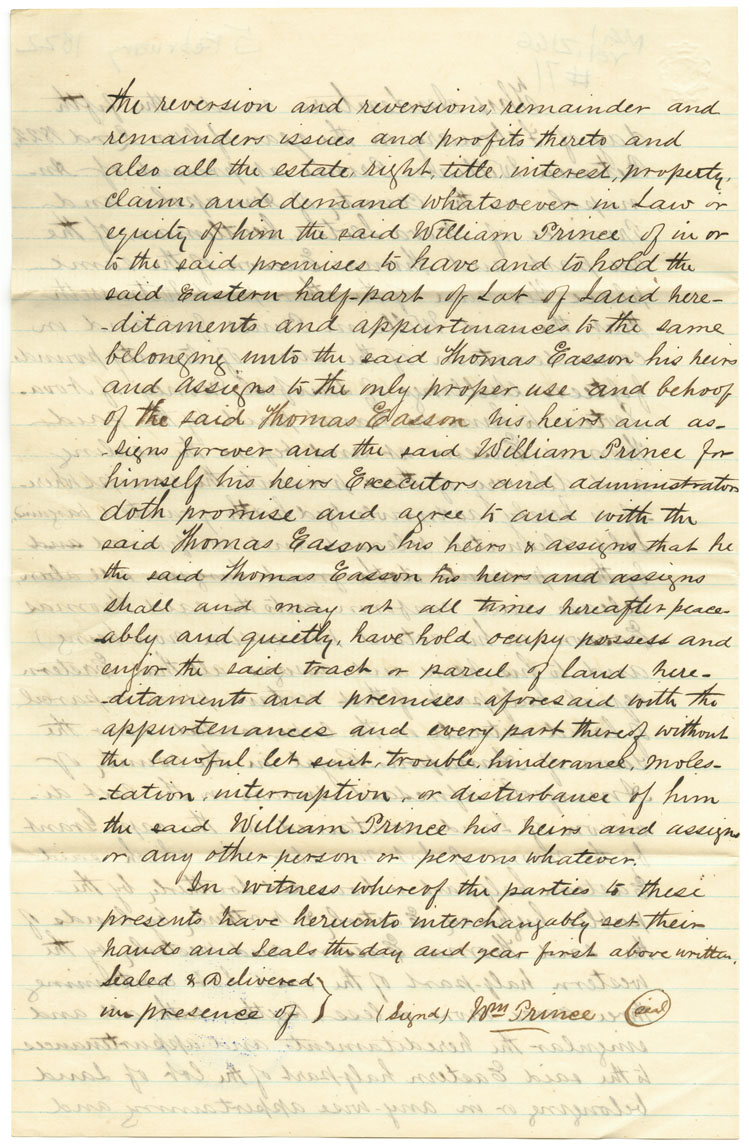 the reversion and reversions, remainder and
remainders issues and profits thereto and
also all the estate, right, title interest, property,
claim and demand whatsoever in Law or
equity of him the said William Prince of in or
to the said premises to have and to hold the
said Eastern half-part of Lot of Land here-
-ditaments and appurtenances to the same
belonging unto the said Thomas Easson his heirs
and assigns to the only proper use and behoof
of the said Thomas Easson his heirs and as-
-signs forever and the said William Prince for
himself his heirs Executors and administrators
doth promise and agree to and with the
said Thomas Easson his heirs & assigns that he
the said Thomas Easson his heirs and assigns
shall and may at all times hereafter peace-
ably and quietly, have hold ocupy possess and
enjoy the said tract or parcel of land here-
-ditaments and premises aforesaid with the
appurtenances and every part thereof without
the lawful, let suit, trouble, hinderance, moles-
-tation, interruption, or disturbance of him
the said William Prince his heirs and assigns
or any other person or persons whatever.
In witness whereof the parties to these
presents have hereunto interchangably set their
hands and Seals the day and year first above written.
Sealed & Delivered }
in presence of } (Signd) Wm Prince